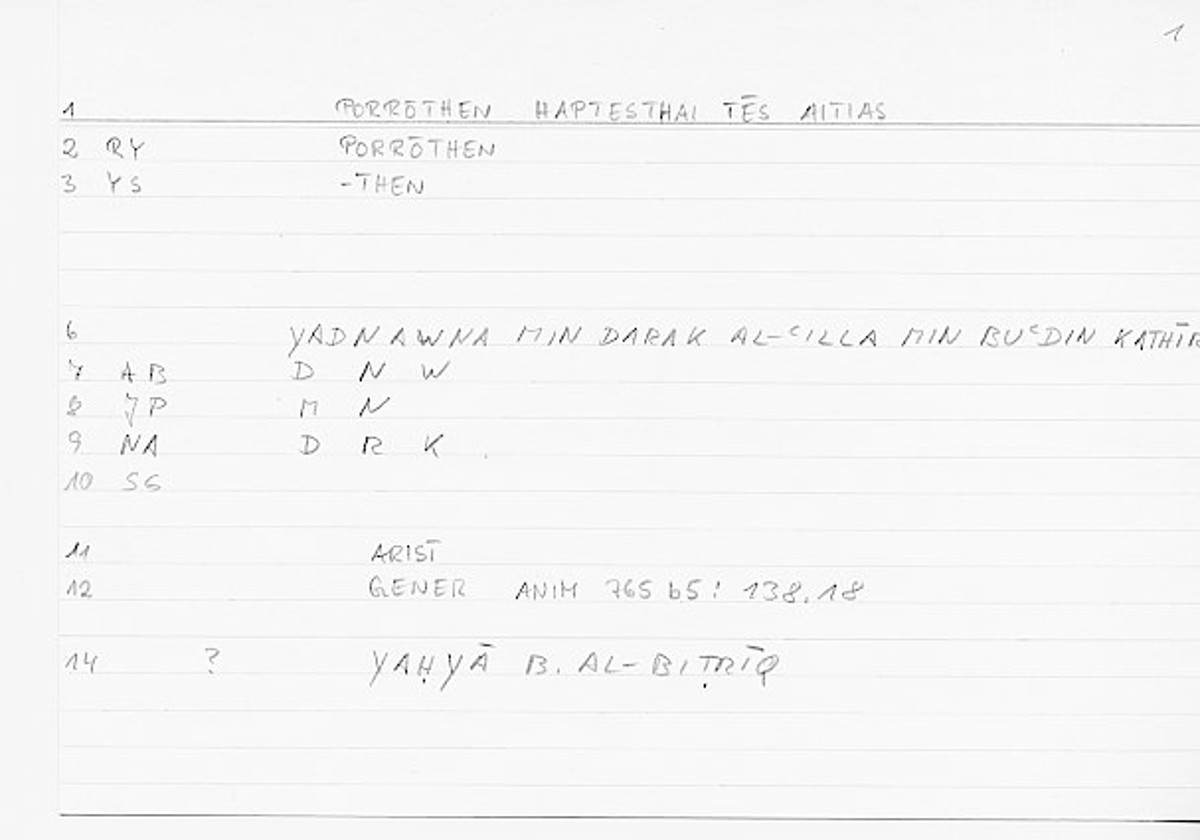 1
1 PORRŌTHEN HAPTESTHAI TĒS AITIAS
2 RY PORRŌTHEN
3 YS -THEN
6 YADNAWNA MIN DARAK AL-ʿILLA MIN BUʿDIN KATHĪR
7 AB D N W
8 JP M N
9 NA D R K .
10 SS
11 ARIST
12 GENER ANIM 765 b5: 138.18
14 ? YAḤYĀ B. AL-BIṬRĪQ